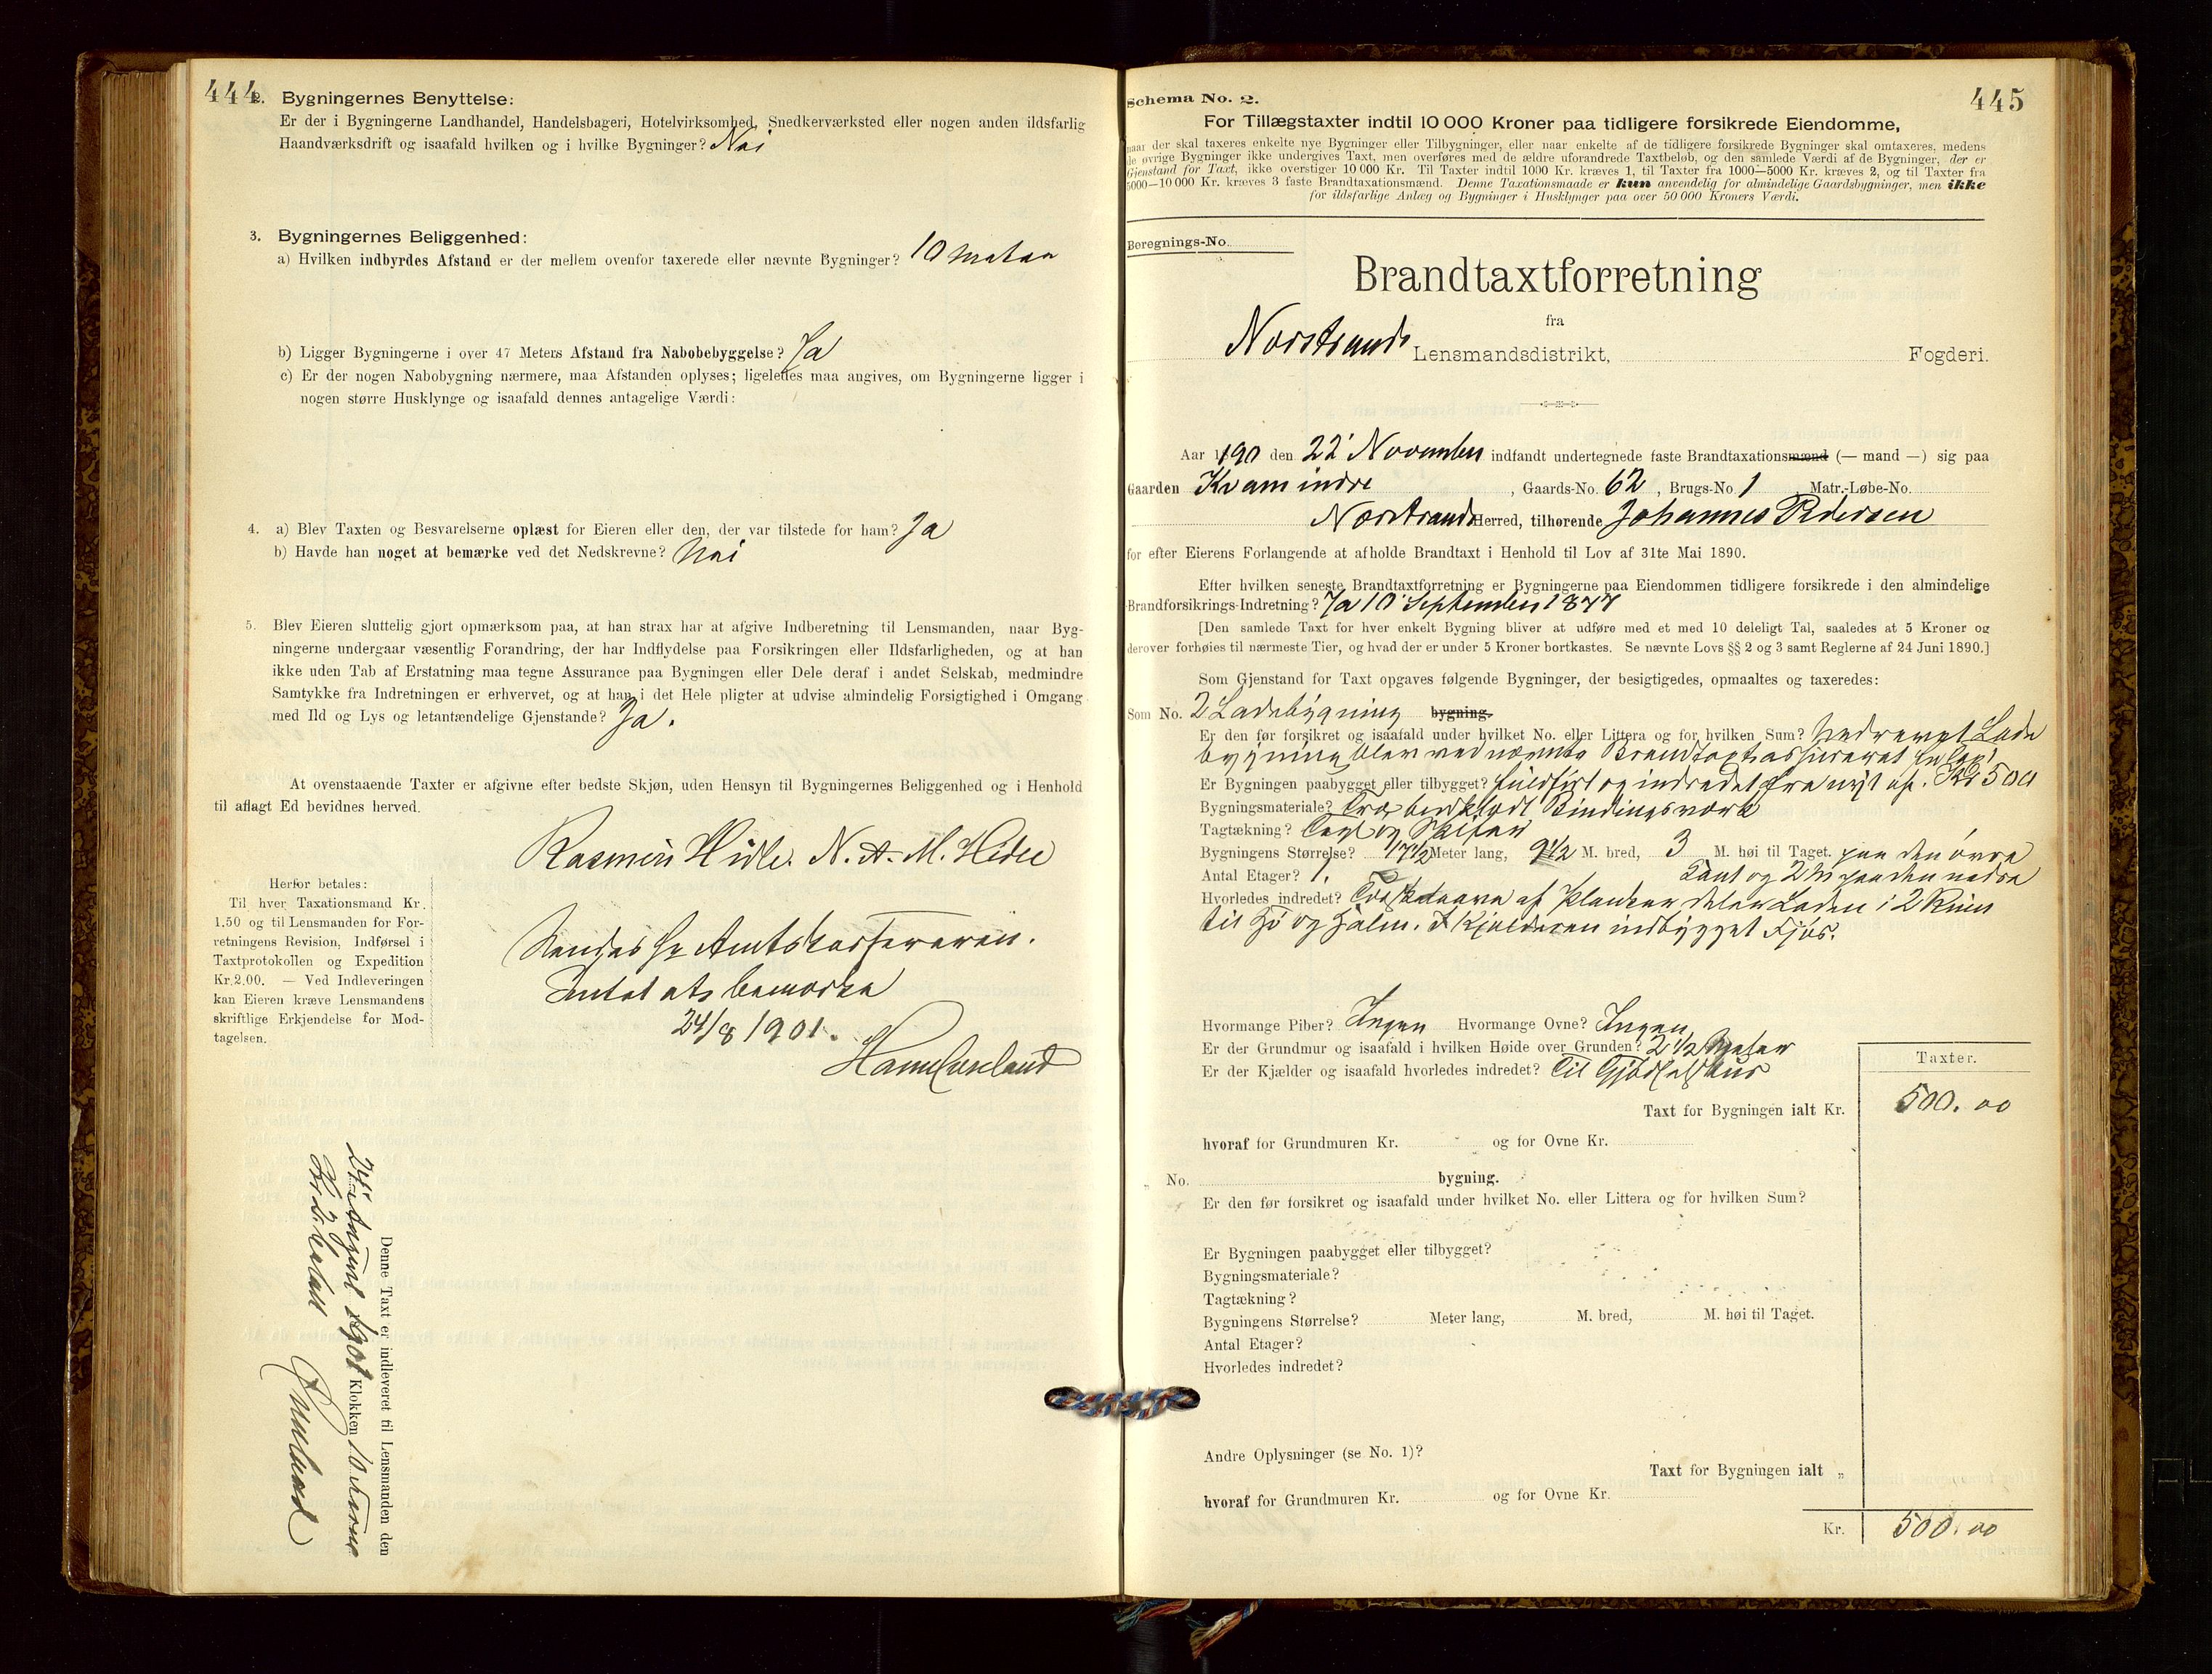 444
2. Bygningernes Benyttelse:
Er der i Bygningerne Landhandel, Handelsbageri, Hotelvirksomhed, Snedkerværksted eller nogen anden ildsfarlig
Haandværksdrift og isaafald hvilken og i hvilke Bygninger? Nei
3. Bygningernes Beliggenhed:
a) Hvilken indbyrdes Afstand er der mellem ovenfor taxerede eller nævnte Bygninger? 10 meter
b) Ligger Bygningerne i over 47 Meters Afstand fra Nabobebyggelse? Ja
c) Er der nogen Nabobygning nærmere, maa Afstanden oplyses; ligeledes maa angives, om Bygningerne ligger i
nogen større Husklynge og isaafald dennes antagelige Værdi:
4. a) Blev Taxten og Besvarelserne oplæst for Eieren eller den, der var tilstede for ham? Ja
b) Havde han noget at bemærke ved det Nedskrevne? Nei
5. Blev Eieren sluttelig gjort opmærksom paa, at han strax har at afgive Indberetning til Lensmanden, naar Byg-
ningerne undergaar væsentlig Forandring, der har Indflydelse paa Forsikringen eller Ildsfarligheden, og at han
ikke uden Tab af Erstatning maa tegne Assurance paa Bygningen eller Dele deraf i andet Selskab, medmindre
Samtykke fra Indretningen er erhvervet, og at han i det Hele pligter at udvise almindelig Forsigtighed i Omgang
med Ild og Lys og letantændelige Gjenstande? Ja.
At ovenstaaende Taxter er afgivne efter bedste Skjøn, uden Hensyn til Bygningernes Beliggenhed og i Henhold
til aflagt Ed bevidnes herved.
Rasmus Hidle. N. A. M. Hidle
Herfor betales:
Til hver Taxationsmand Kr.
1.50 og til Lensmanden for For-
retningens Revision, Indførsel i
Taxtprotokollen og Expedition
Kr. 2.00. — Ved Indleveringen
kan Eieren kræve Lensmandens
skriftlige Erkjendelse for Mod-
tagelsen.
Sendes Hr Amtskassereren.
Intet at bemærke
24/8 1901.
Denne Taxt er indleveret til Lensmanden den
24de August 1901 Klokken 10 Form
Kr 2, betalt
445
Schema No. 2.
For Tillægstaxter indtil 10 000 Kroner paa tidligere forsikrede Eiendomme,
naar der skal taxeres enkelte nye Bygninger eller Tilbygninger, eller naar enkelte af de tidligere forsikrede Bygninger skal omtaxeres, medens
de øvrige Bygninger ikke undergives Taxt, men overføres med de ældre uforandrede Taxtbeløb, og den samlede Værdi af de Bygninger, der er
Gjenstand for Taxt, ikke overstiger 10 000 Kr. Til Taxter indtil 1000 Kr. kræves 1, til Taxter fra 1000—5000 Kr. kræves 2, og til Taxter fra
5000—10 000 Kr. kræves 3 faste Brandtaxationsmænd. Denne Taxationsmaade er kun anvendelig for almindelige Gaardsbygninger, men ikke
for ildsfarlige Anlæg og Bygninger i Husklynger paa over 50 000 Kroners Værdi.
Beregnings-No.
Brandtaxtforretning
fra
Nerstrands Lensmandsdistrikt, Fogderi.
Aar 190 den 22' November indfandt undertegnede faste Brandtaxationsmænd (— mand —) sig paa
Gaarden Kvam indre, Gaards-No. 62, Brugs-No. 1 Matr.-Løbe-No.
Nærstrands Herred, tilhørende Johannes Pedersen
for efter Eierens Forlangende at afholde Brandtaxt i Henhold til Lov af 31te Mai 1890.
Efter hvilken seneste Brandtaxtforretning er Bygningerne paa Eiendommen tidligere forsikrede i den almindelige
Brandforsikrings-Indretning? Ja 10' September 1877
[Den samlede Taxt for hver enkelt Bygning bliver at udføre med et med 10 deleligt Tal, saaledes at 5 Kroner og
derover forhøies til nærmeste Tier, og hvad der er under 5 Kroner bortkastes. Se nævnte Lovs §§ 2 og 3 samt Reglerne af 24 Juni 1890.]
Som Gjenstand for Taxt opgaves følgende Bygninger, der besigtigedes, opmaaltes og taxeredes:
Som No. 2 Ladebygning bygning.
Er den før forsikret og isaafald under hvilket No. eller Littera og for hvilken Sum? Nedrevet Lade
bygning blev ved nævnte Brandtaxt assureret
Er Bygningen paabygget eller tilbygget? fuldført og indredet fra nyt af. Kr 500
Bygningsmateriale? Træ bordklædt Bindingsværk
Tagtækning? Tegl og Skifer
Bygningens Størrelse? 17 1/2 Meter lang, 9 1/2 M. bred, 3 M. høi til Taget. paa den øvre
Antal Etager? 1. Kant og 2 M paa den nedre
Hvorledes indredet? af Planker deler Laden i 2 Rum
til Hø og Halm. I Kjelderen indbygget Fjøs.
Hvormange Piber? Ingen Hvormange Ovne? Ingen
Er der Grundmur og isaafald i hvilken Høide over Grunden? 2 1/2 Meter
Er der Kjælder og isaafald hvorledes indredet? Til Gjødselhus
Taxter.
Taxt for Bygningen ialt Kr. 500.00
hvoraf for Grundmuren Kr. og for Ovne Kr.
„ No. bygning.
Er den før forsikret og isaafald under hvilket No. eller Littera og for hvilken Sum?
Er Bygningen paabygget eller tilbygget?
Bygningsmateriale?
Tagtækning?
Bygningens Størrelse? Meter lang, M. bred, M. høi til Taget.
Antal Etager?
Hvorledes indredet?
Andre Oplysninger (se No. 1)?
Taxt for Bygningen ialt „
hvoraf for Grundmuren Kr. og for Ovne Kr.
Kr. 500.00